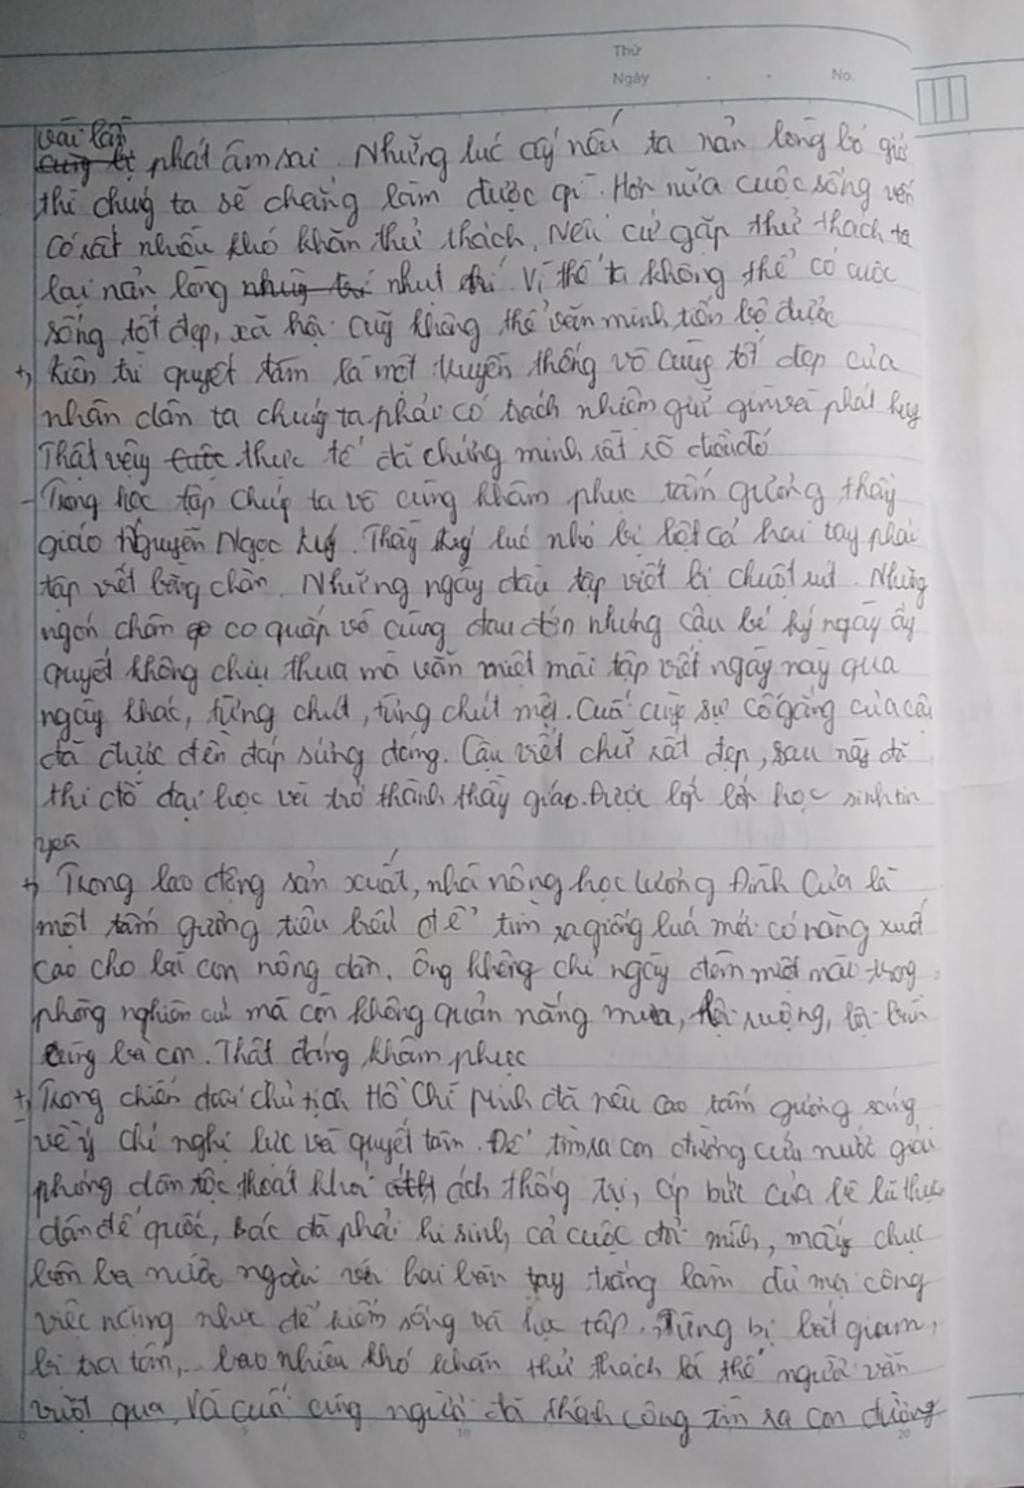 Thứ
Ngày . . No.
vài lần
phát âm sai. Những lúc ấy nếu ta nản lòng bỏ giở
thì chúng ta sẽ chẳng làm được gì. Hơn nữa cuộc sống vốn
có rất nhiều khó khăn thử thách. Nếu cứ gặp thử thách ta
lại nản lòng nhụt chí. Vì thế ta không thể có cuộc
sống tốt đẹp, xã hội cũg không thể văn minh tiến bộ được
+, kiên trì quyết tâm là một truyền thống vô cùng tốt đẹp của
nhân dân ta chúng ta phải có trách nhiệm giữ gìn và phát huy
Thật vậy thực tế đã chứng minh rất rõ điều đó
- Trong học tập chúg ta vô cùng khâm phục tấm gương thầy
giáo Nguyễn Ngọc Ký. Thầy Ký lúc nhỏ bị liệt cả hai tay phải
tập viết bằng chân. Những ngày đầu tập viết bị chuột rút. Những
ngón chân co quắp vô cùng đau đớn nhưng cậu bé Ký ngày ấy
quyết không chịu thua mà vẫn miệt mài tập viết ngày này qua
ngày khác, từng chút, từng chút một. Cuối cùng sự cố gắng của cậu
đã được đền đáp xứng đáng. Cậu viết chữ rất đẹp, sau này đã
thi đỗ đại học và trở thành thầy giáo. Được lớp lớp học sinh tin
yêu
+, Trong lao động sản xuất, nhà nông học Lương Đình Của là
một tấm gương tiêu biểu để tìm ra giống luá mới có năng xuất
cao cho bà con nông dân. Ông không chỉ ngày đêm miệt mài trong
phòng nghiên cứu mà còn không quản nắng mưa, lội ruộng, lội bùn
cùng bà con. Thật đáng khâm phục
+, Trong chiến đấu chủ tịch Hồ Chí Minh đã nêu cao tấm gương sáng
về ý chí nghị lực và quyết tâm. Để tìm ra con đường cứu nước giải
phóng dân tộc thoát khỏi ách thống trị, áp bức của bè lũ thực
dân đế quốc, Bác đã phải hi sinh cả cuộc đời mình, mấy chục
bôn ba nước ngoài với hai bàn tay trắng làm đủ mọi công
việc nặng nhọc để kiếm sống và học tập. Từng bị bắt giam,
bị tra tấn,.. bao nhiêu khó khăn thử thách là thế người vẫn
vượt qua. Và cuối cùng người đã thành công tìm ra con đường
0 5 10 20